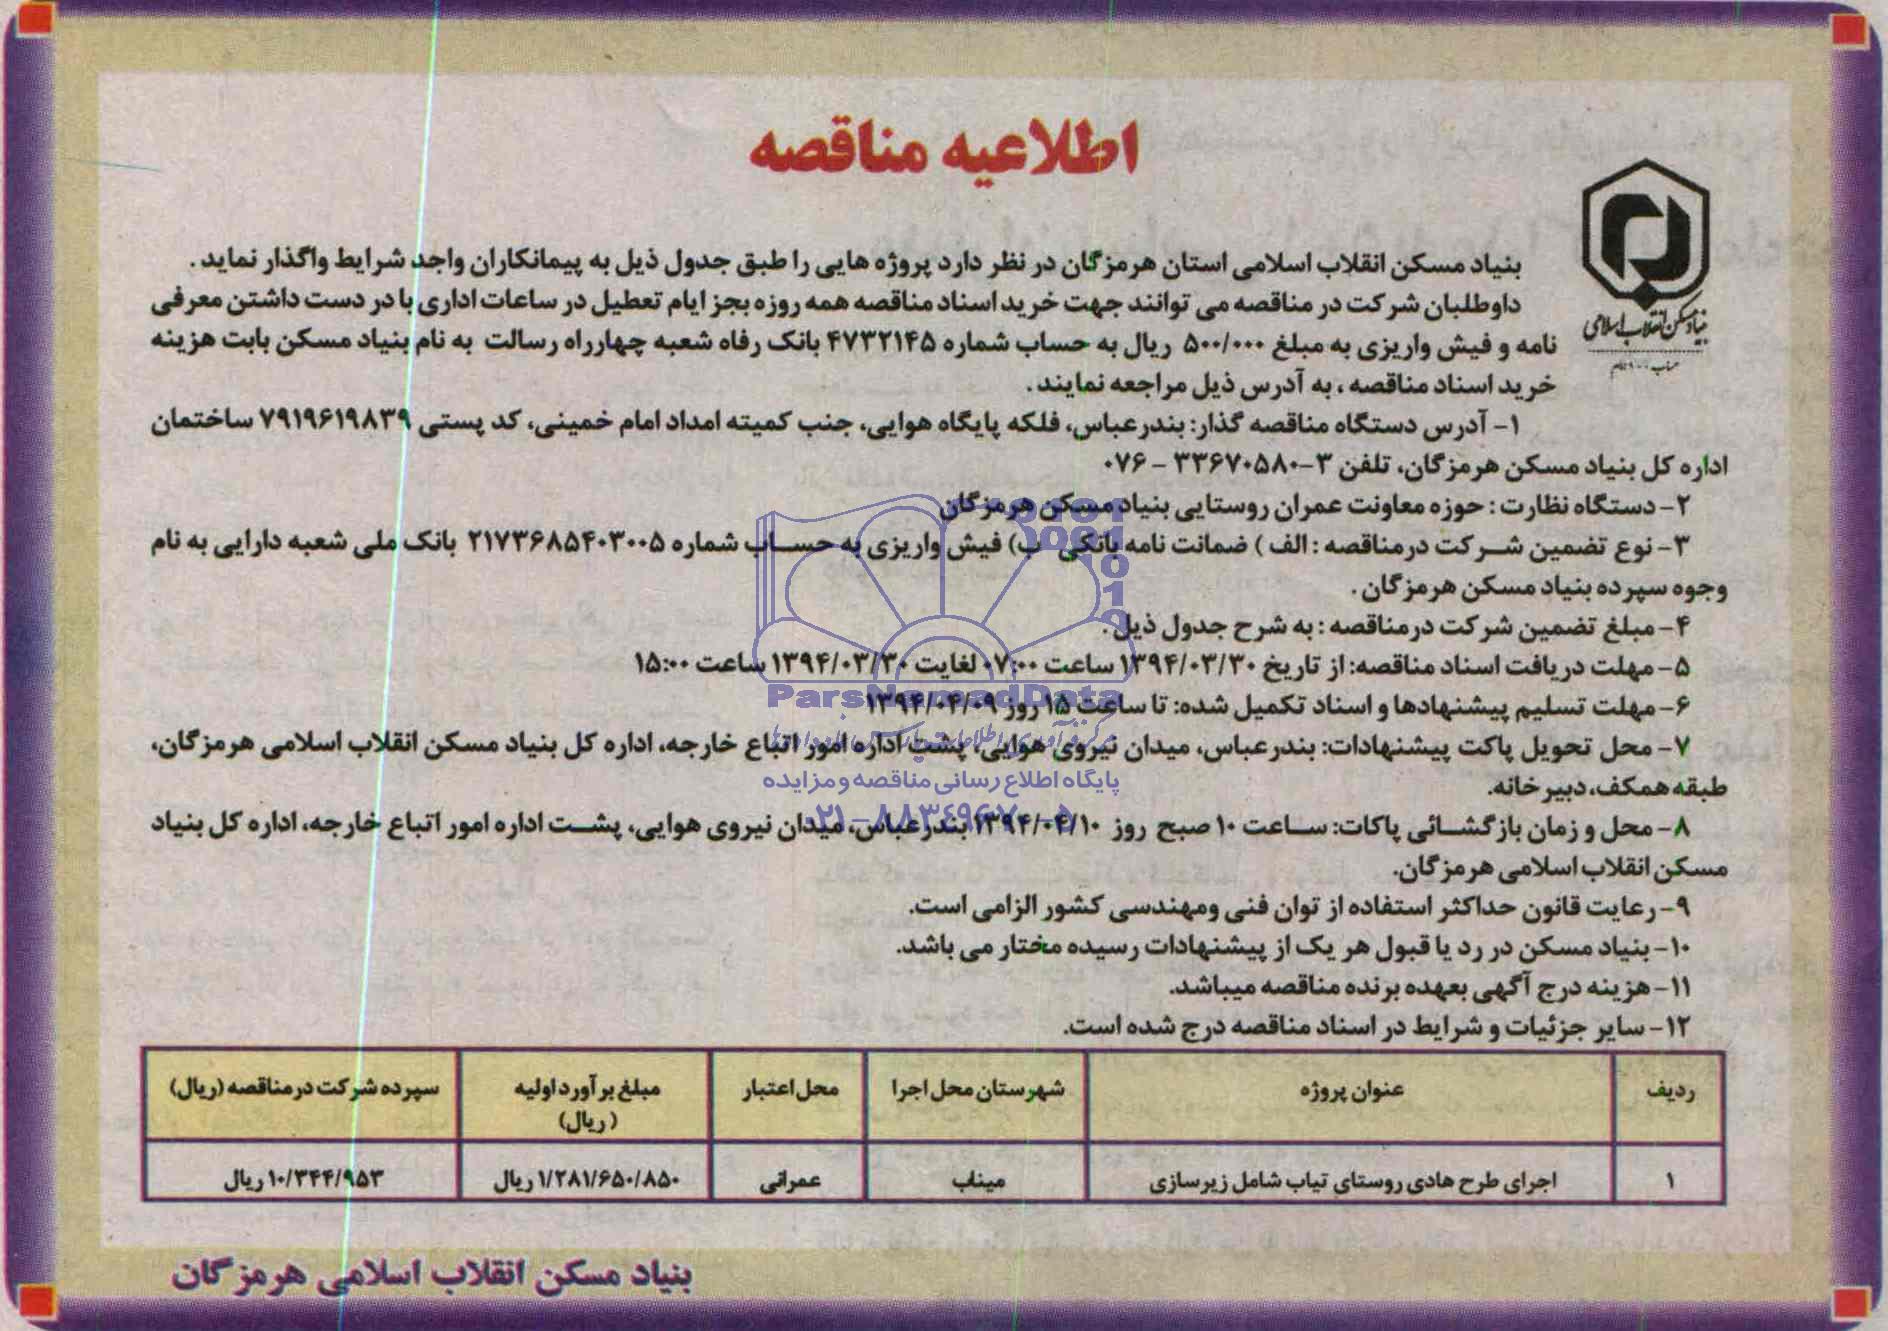 اطلاعیه مناقصه
بنیاد مسکن انقلاب اسلامی
بنیاد مسکن انقلاب اسلامی استان هرمزگان در نظر دارد پروژه هایی را طبق جدول ذیل به پیمانکاران واجد شرایط واگذار نماید.
داوطلبان شرکت در مناقصه می توانند جهت خرید اسناد مناقصه همه روزه بجز ایام تعطیل در ساعات اداری با در دست داشتن معرفی
نامه و فیش واریزی به مبلغ ۵۰۰/۰۰۰ ریال به حساب شماره ۴۷۳۲۱۴۵ بانک رفاه شعبه چهارراه رسالت به نام بنیاد مسکن بابت هزینه
خرید اسناد مناقصه ، به آدرس ذیل مراجعه نمایند.
۱- آدرس دستگاه مناقصه گذار: بندرعباس، فلکه پایگاه هوایی، جنب کمیته امداد امام خمینی، کد پستی ۷۹۱۹۶۱۹۸۳۹ ساختمان
اداره کل بنیاد مسکن هرمزگان، تلفن ۳-۳۳۶۷۰۵۸۰ - ۰۷۶
۲- دستگاه نظارت : حوزه معاونت عمران روستایی بنیاد مسکن هرمزگان
۳- نوع تضمین شرکت درمناقصه : الف ) ضمانت نامه بانکی ب) فیش واریزی به حساب شماره ۲۱۷۳۶۸۵۴۰۳۰۰۵ بانک ملی شعبه دارایی به نام
وجوه سپرده بنیاد مسکن هرمزگان .
۴- مبلغ تضمین شرکت درمناقصه : به شرح جدول ذیل .
۵- مهلت دریافت اسناد مناقصه: از تاریخ ۱۳۹۴/۰۳/۳۰ ساعت ۰۷:۰۰ لغایت ۱۳۹۴/۰۳/۳۰ ساعت ۱۵:۰۰
۶- مهلت تسلیم پیشنهادها و اسناد تکمیل شده: تا ساعت ۱۵ روز ۱۳۹۴/۰۴/۰۹
۷- محل تحویل پاکت پیشنهادات: بندرعباس، میدان نیروی هوایی، پشت اداره امور اتباع خارجه، اداره کل بنیاد مسکن انقلاب اسلامی هرمزگان،
طبقه همکف، دبیرخانه.
۸- محل و زمان بازگشائی پاکات: ساعت ۱۰ صبح روز ۱۳۹۴/۰۴/۱۰ بندرعباس، میدان نیروی هوایی، پشت اداره امور اتباع خارجه، اداره کل بنیاد
مسکن انقلاب اسلامی هرمزگان.
۹- رعایت قانون حداکثر استفاده از توان فنی ومهندسی کشور الزامی است.
۱۰- بنیاد مسکن در رد یا قبول هر یک از پیشنهادات رسیده مختار می باشد.
۱۱- هزینه درج آگهی بعهده برنده مناقصه میباشد.
۱۲- سایر جزئیات و شرایط در اسناد مناقصه درج شده است.
ردیف عنوان پروژه شهرستان محل اجرا محل اعتبار مبلغ برآورد اولیه (ریال) سپرده شرکت درمناقصه (ریال)
۱ اجرای طرح هادی روستای تیاب شامل زیرسازی میناب عمرانی ۱/۲۸۱/۶۵۰/۸۵۰ ریال ۱۰/۳۴۴/۹۵۳ ریال
بنیاد مسکن انقلاب اسلامی هرمزگان
ParsNamadData
پایگاه اطلاع رسانی مناقصه و مزایده